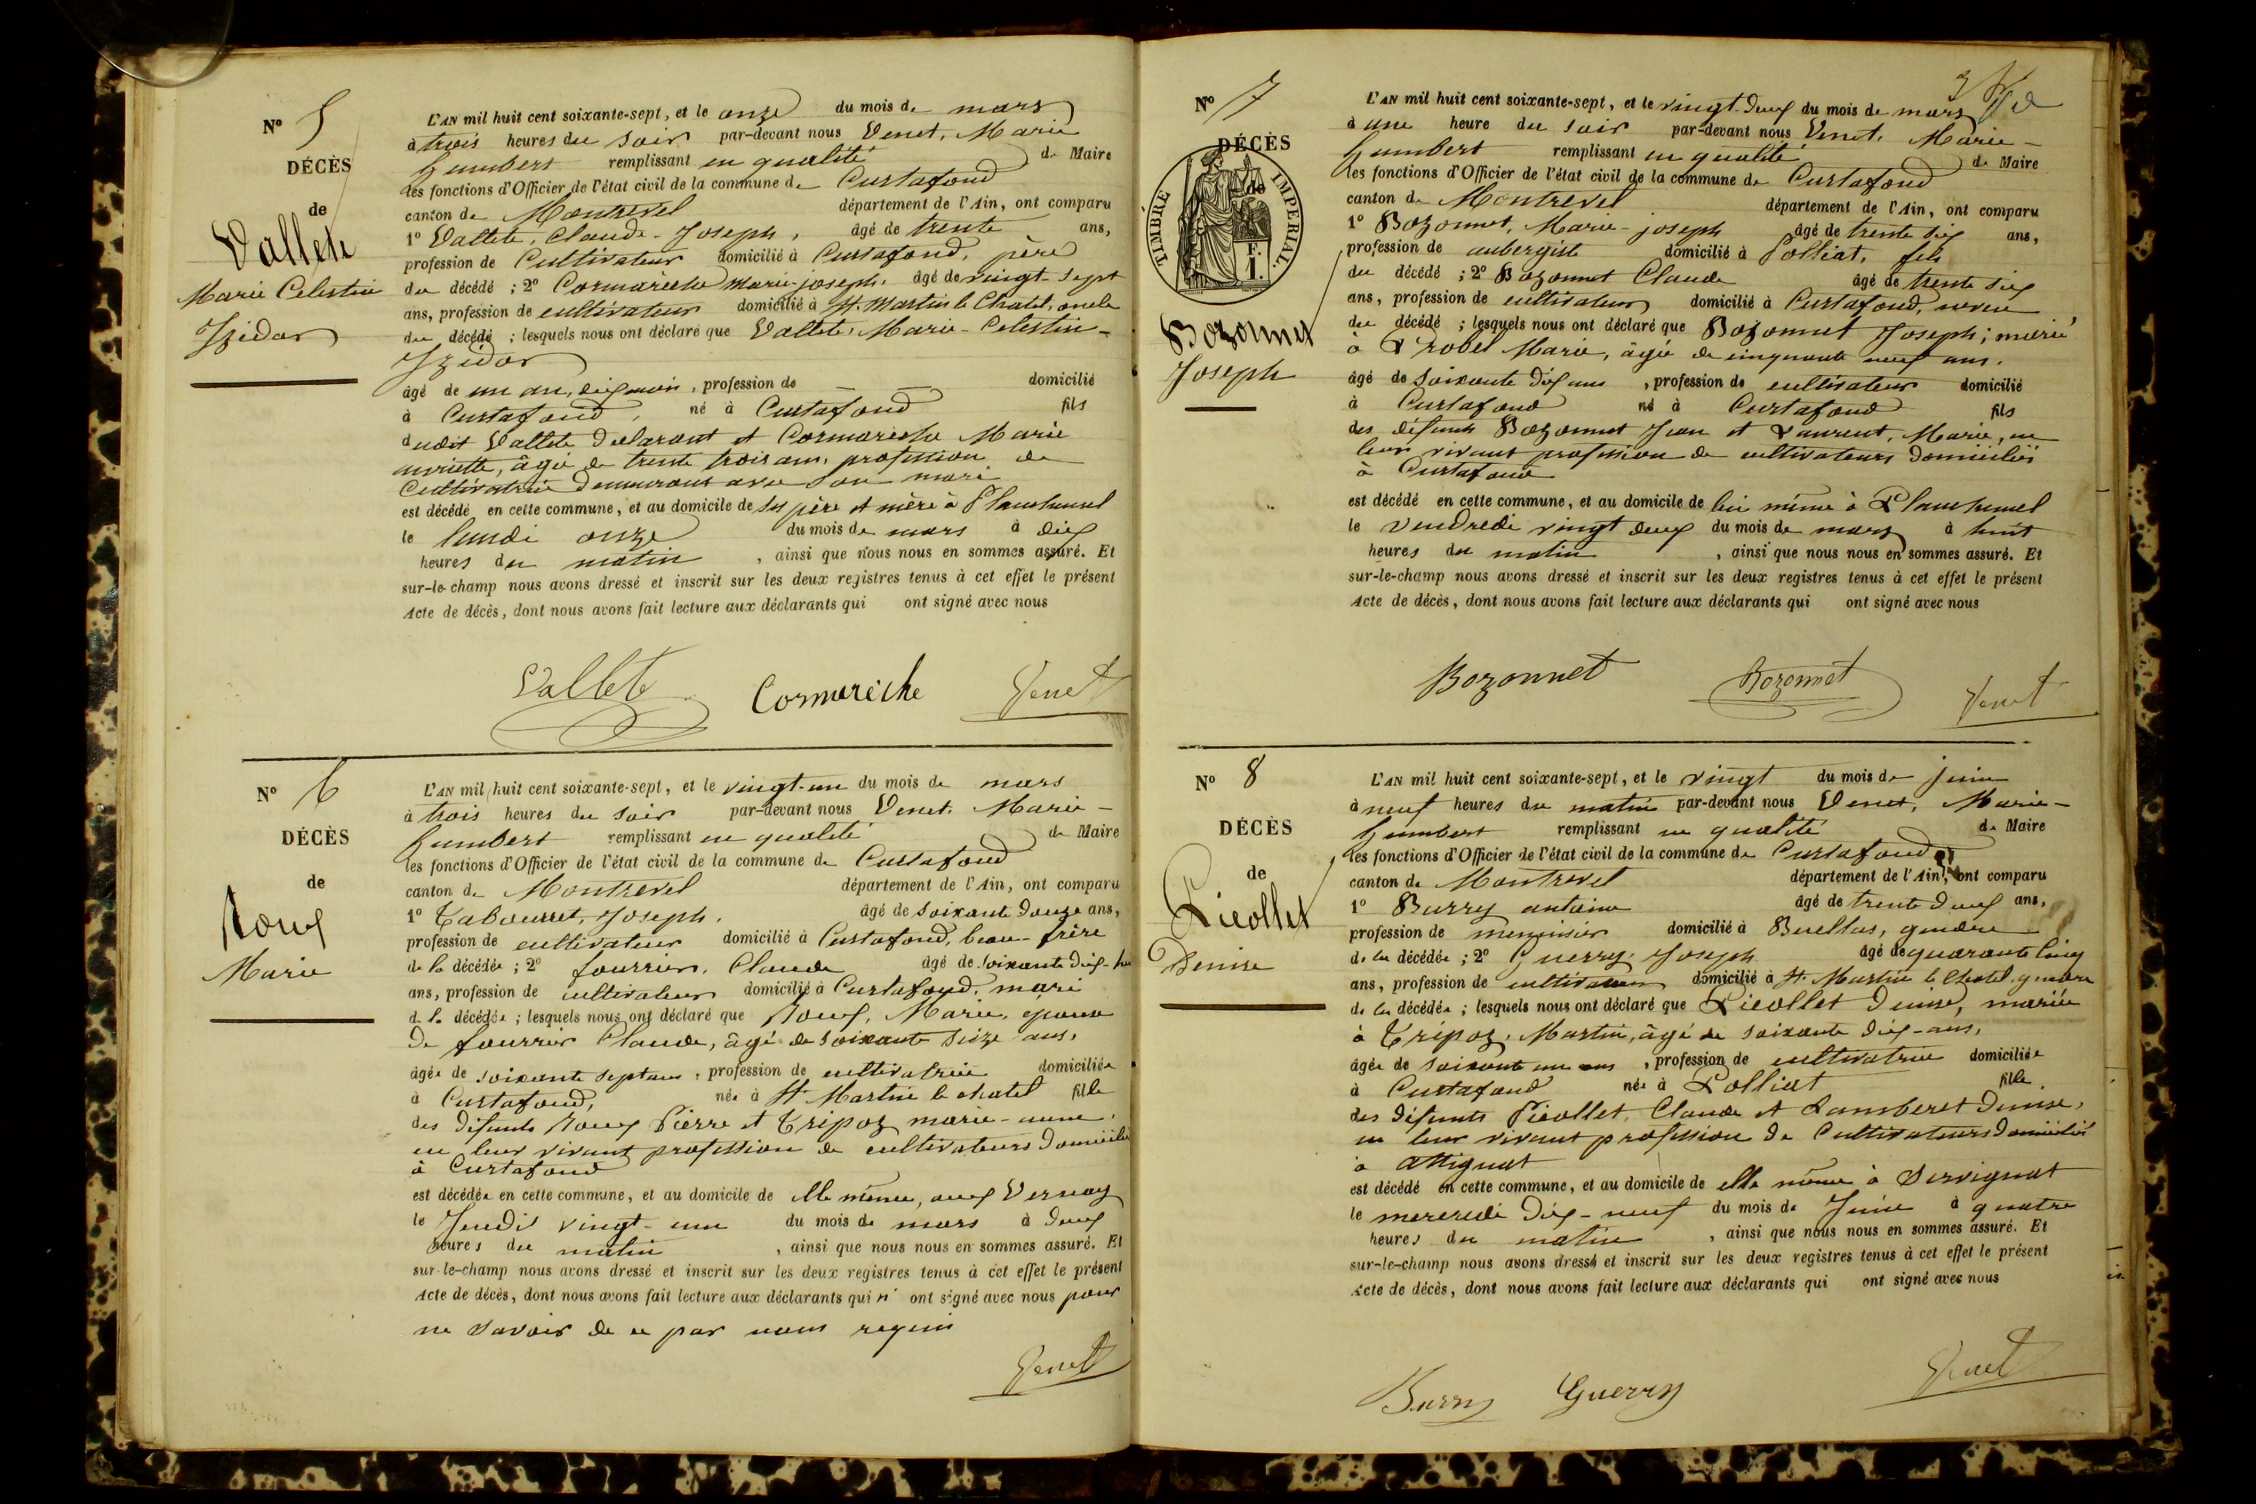 N° 5
DÉCÈS
de
Vallete
Marie Celestin
Izidor
L'AN mil huit cent soixante-sept, et le onze du mois de mars
à trois heures du soir par-devant nous Venet, Marie
humbert remplissant en qualité de Maire
les fonctions d'Officier de l'état civil de la commune de Curtafond
canton de Montrevel département de l'Ain, ont comparu
1° Vallete, Claude-Joseph, âgé de trente ans,
profession de Cultivateur domicilié à Curtafond, père
du décédé ; 2° Cormarèche marie-joseph. âgé de vingt-sept
ans, profession de cultivateur domicilié à St. Martin le Chatel, oncle
du décédé ; lesquels nous ont déclaré que Vallete, Marie-Celestin-
Izidor
âgé de un an, dix mois, profession de — — domicilié
à Curtafond, né à Curtafond fils
dudit Vallete déclarant et Cormarèche Marie
mriette, âgée de trente trois ans, profession de
Cultivatrice demeurant avec son mari
est décédé en cette commune, et au domicile de ses père et mère à
le lundi onze du mois de mars à dix
heures du matin, ainsi que nous nous en sommes assuré. Et
sur-le-champ nous avons dressé et inscrit sur les deux registres tenus à cet effet le présent
Acte de décès, dont nous avons fait lecture aux déclarants qui ont signé avec nous
Vallete Cormarèche Venet
N° 6
DÉCÈS
de
Roux
Marie
L'AN mil huit cent soixante-sept, et le vingt-un du mois de mars
à trois heures du soir par-devant nous Venet, Marie-
humbert remplissant en qualité de Maire
les fonctions d'Officier de l'état civil de la commune de Curtafond
canton de Montrevel département de l'Ain, ont comparu
1° Tabouret, Joseph. âgé de soixante douze ans,
profession de cultivateur domicilié à Curtafond, beau-frère
de la décédée ; 2° fourrier, Claude âgé de soixante dix-
ans, profession de cultivateur domicilié à Curtafond, mari
de la décédée ; lesquels nous ont déclaré que Roux, Marie, épouse
de fourrier Claude, âgé de soixante seize ans,
âgée de soixante sept ans, profession de cultivatrice domiciliée
à Curtafond, née à St Martin le chatel fille
des défunts Roux Pierre et Tripoz marie-anne,
en leur vivant profession de cultivateurs domiciliés
à Curtafond
est décédée en cette commune, et au domicile de elle même, aux Vernay
le Jeudi vingt-un du mois de mars à deux
heures du matin, ainsi que nous nous en sommes assuré. Et
sur-le-champ nous avons dressé et inscrit sur les deux registres tenus à cet effet le présent
Acte de décès, dont nous avons fait lecture aux déclarants qui n' ont signé avec nous pour
ne savoir de ce par nous requis
Venet
N° 7
DÉCÈS
de
TIMBRE IMPÉRIAL
1 F.
Bozonnet
Joseph
L'AN mil huit cent soixante-sept, et le vingt-deux du mois de mars
à une heure du soir par-devant nous Venet, Marie-
humbert remplissant en qualité de Maire
les fonctions d'Officier de l'état civil de la commune de Curtafond
canton de Montrevel département de l'Ain, ont comparu
1° Bozonnet, Marie-joseph âgé de trente six ans,
profession de aubergiste domicilié à Polliat, fils
du décédé ; 2° Bozonnet Claude âgé de trente six
ans, profession de cultivateur domicilié à Curtafond, neveu
du décédé ; lesquels nous ont déclaré que Bozonnet Joseph ; marié
à Probel Marie, âgée de cinquante neuf ans.
âgé de soixante dix ans, profession de cultivateur domicilié
à Curtafond né à Curtafond fils
des défunts Bozonnet Jean et Laurent, Marie, en
leur vivant profession de cultivateurs domiciliés
à Curtafond
est décédé en cette commune, et au domicile de lui même à
le vendredi vingt deux du mois de mars à huit
heures du matin, ainsi que nous nous en sommes assuré. Et
sur-le-champ nous avons dressé et inscrit sur les deux registres tenus à cet effet le présent
Acte de décès, dont nous avons fait lecture aux déclarants qui ont signé avec nous
Bozonnet Bozonnet Venet
N° 8
DÉCÈS
de
Picollet
Denise
L'AN mil huit cent soixante-sept, et le vingt du mois de juin
à neuf heures du matin par-devant nous Venet, Marie-
humbert remplissant en qualité de Maire
les fonctions d'Officier de l'état civil de la commune de Curtafond
canton de Montrevel département de l'Ain, ont comparu
1° Burry antoine âgé de trente deux ans,
profession de menuisier domicilié à Buellas, gendre
de la décédée ; 2° Guerry, Joseph âgé de quarante cinq
ans, profession de cultivateur domicilié à St. Martin le Chatel, gendre
de la décédée ; lesquels nous ont déclaré que Picollet Denise, mariée
à Tripoz, Martin, âgé de soixante dix-ans,
âgée de soixante un ans, profession de cultivatrice domiciliée
à Curtafond née à Polliat fille
des défunts Picollet, Claude et Lamberet Denise,
en leur vivant profession de Cultivateurs domiciliés
à Attignat
est décédé en cette commune, et au domicile de elle même à Servignat
le mercredi dix-neuf du mois de Juin à quatre
heures du matin, ainsi que nous nous en sommes assuré. Et
sur-le-champ nous avons dressé et inscrit sur les deux registres tenus à cet effet le présent
Acte de décès, dont nous avons fait lecture aux déclarants qui ont signé avec nous
Burry Guerry Venet